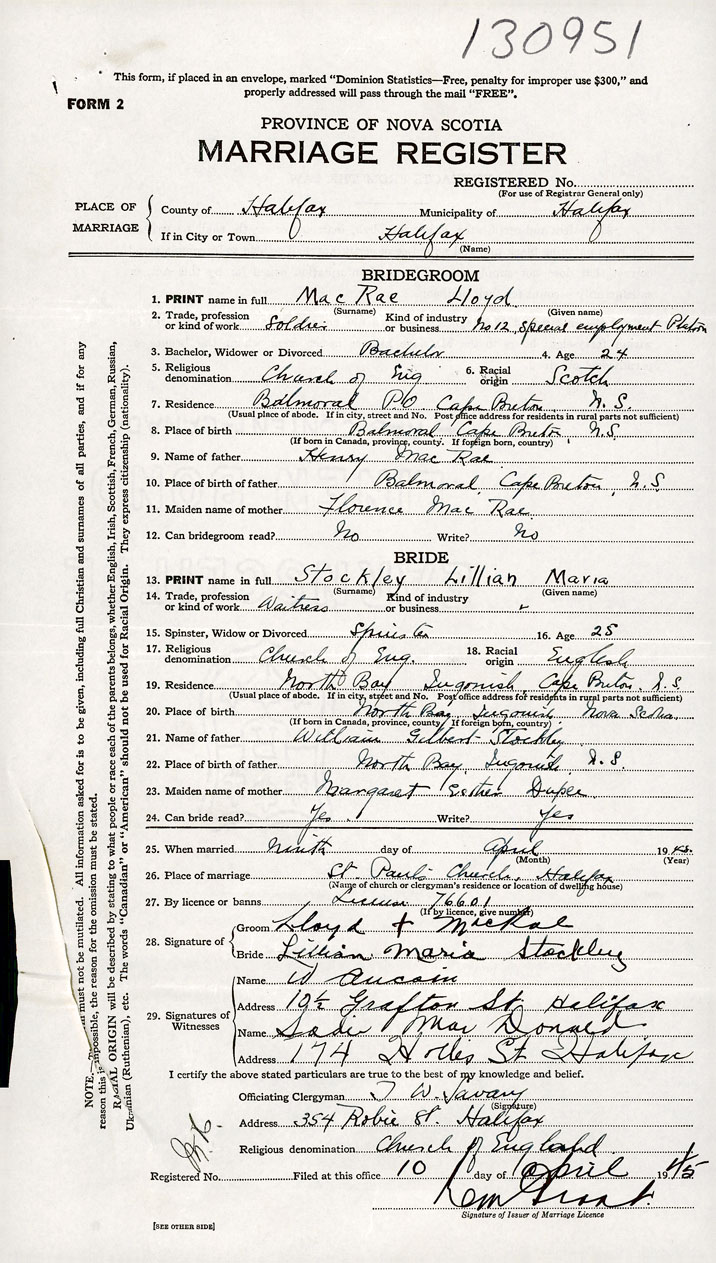 130951
This form, if placed in an envelope, marked “Dominion Statistics—Free, penalty for improper use $300,” and
properly addressed will pass through the mail “FREE”.
FORM 2
PROVINCE OF NOVA SCOTIA
MARRIAGE REGISTER
REGISTERED No.
(For use of Registrar General only)
PLACE OF MARRIAGE
County of Halifax Municipality of Halifax
If in City or Town Halifax
(Name)
BRIDEGROOM
1. PRINT name in full Mac Rae Lloyd
(Surname) (Given name)
2. Trade, profession or kind of work Soldier Kind of industry or business No 12 Special employment Platoon
3. Bachelor, Widower or Divorced Bachelor 4. Age 24
5. Religious denomination Church of Eng 6. Racial origin Scotch
7. Residence Balmoral PO Cape Breton N.S.
(Usual place of abode. If in city, street and No. Post office address for residents in rural parts not sufficient)
8. Place of birth Balmoral Cape Breton N.S.
(If born in Canada, province, county. If foreign born, country)
9. Name of father Henry Mac Rae
10. Place of birth of father Balmoral, Cape Breton, N.S.
11. Maiden name of mother Florence Mac Rae
12. Can bridegroom read? No Write? No
BRIDE
13. PRINT name in full Stockley Lillian Maria
(Surname) (Given name)
14. Trade, profession or kind of work Waitress Kind of industry or business
15. Spinster, Widow or Divorced Spinster 16. Age 25
17. Religious denomination Church of Eng. 18. Racial origin English
19. Residence North Bay Ingonish, Cape Breton, N.S.
(Usual place of abode. If in city, street and No. Post office address for residents in rural parts not sufficient)
20. Place of birth North Bay Ingonish Nova Scotia
(If born in Canada, province, county. If foreign born, country)
21. Name of father William Gilbert Stockley
22. Place of birth of father North Bay, Ingonish N.S.
23. Maiden name of mother Margaret Esther
24. Can bride read? Yes Write? Yes
25. When married Ninth day of April 1945
(Month) (Year)
26. Place of marriage St. Paul's Church, Halifax
(Name of church or clergyman's residence or location of dwelling house)
27. By licence or banns License 76601
(If by licence, give number)
28. Signature of
Groom Lloyd + MacRae
Bride Lillian Maria Stockley
29. Signatures of Witnesses
Name W Aucoin
Address 19½ Grafton St. Halifax
Name Sadie Mac Donald
Address 174 Hollis St Halifax
I certify the above stated particulars are true to the best of my knowledge and belief.
Officiating Clergyman T W. Savary
(Signature)
Address 354 Robie St. Halifax
Religious denomination Church of England
Registered No. Filed at this office 10 day of April 1945
Signature of Issuer of Marriage Licence
[SEE OTHER SIDE]
NOTE. must not be mutilated. All information asked for is to be given, including full Christian and surnames of all parties, and if for any
reason this is impossible, the reason for the omission must be stated.
RACIAL ORIGIN will be described by stating to what people or race each of the parents belongs, whether English, Irish, Scottish, French, German, Russian,
Ukrainian (Ruthenian), etc. The words “Canadian” or “American” should not be used for Racial Origin. They express citizenship (nationality).